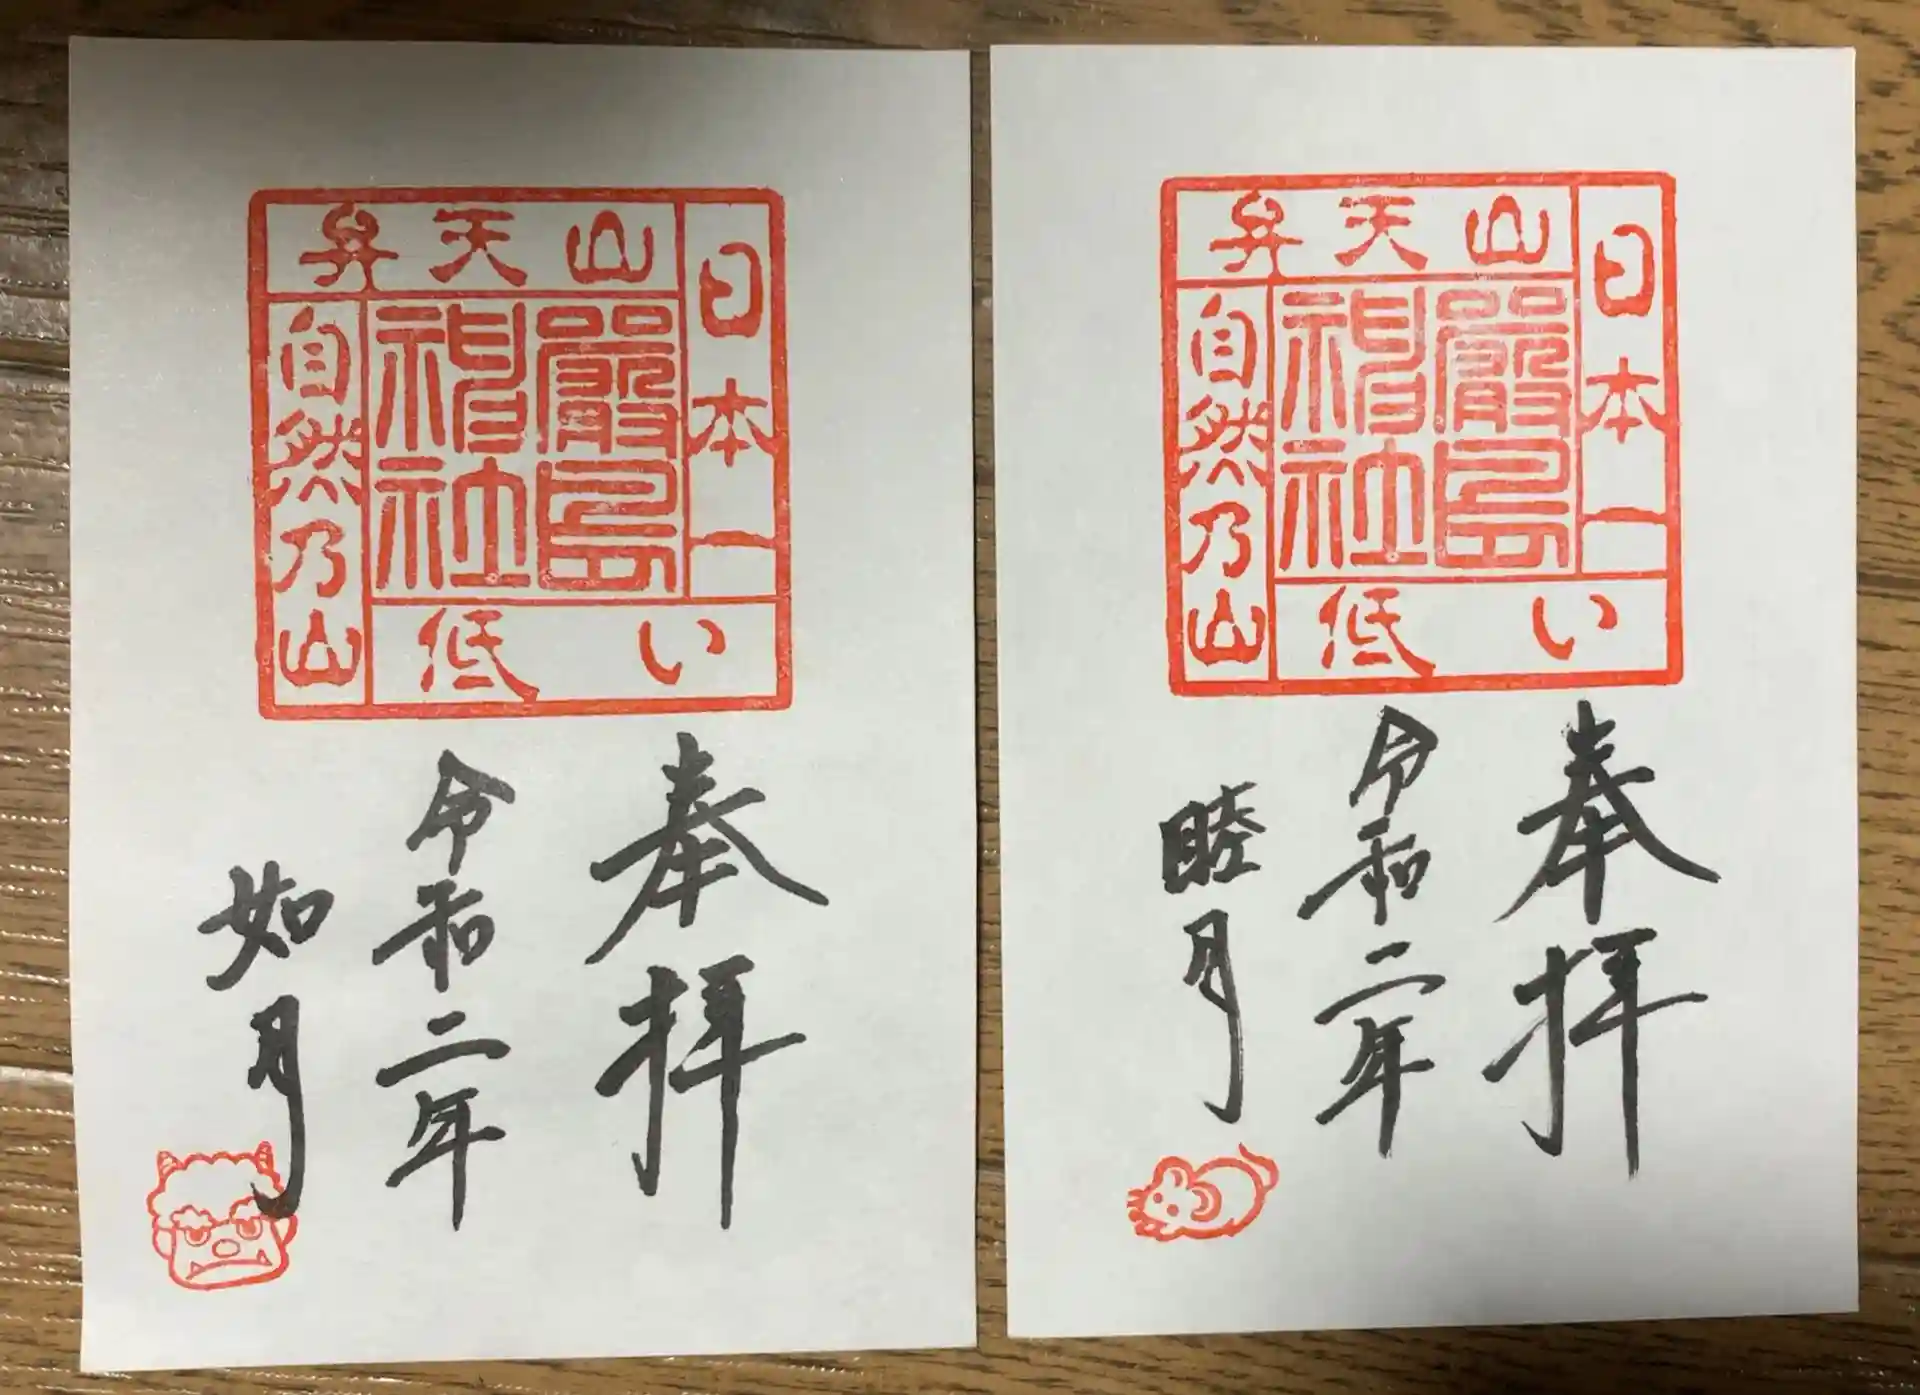 日本一
い低
山天弁
自然乃山
厳島
神社
奉拝
令和二年
如月
日本一
い低
山天弁
自然乃山
厳島
神社
奉拝
令和二年
睦月